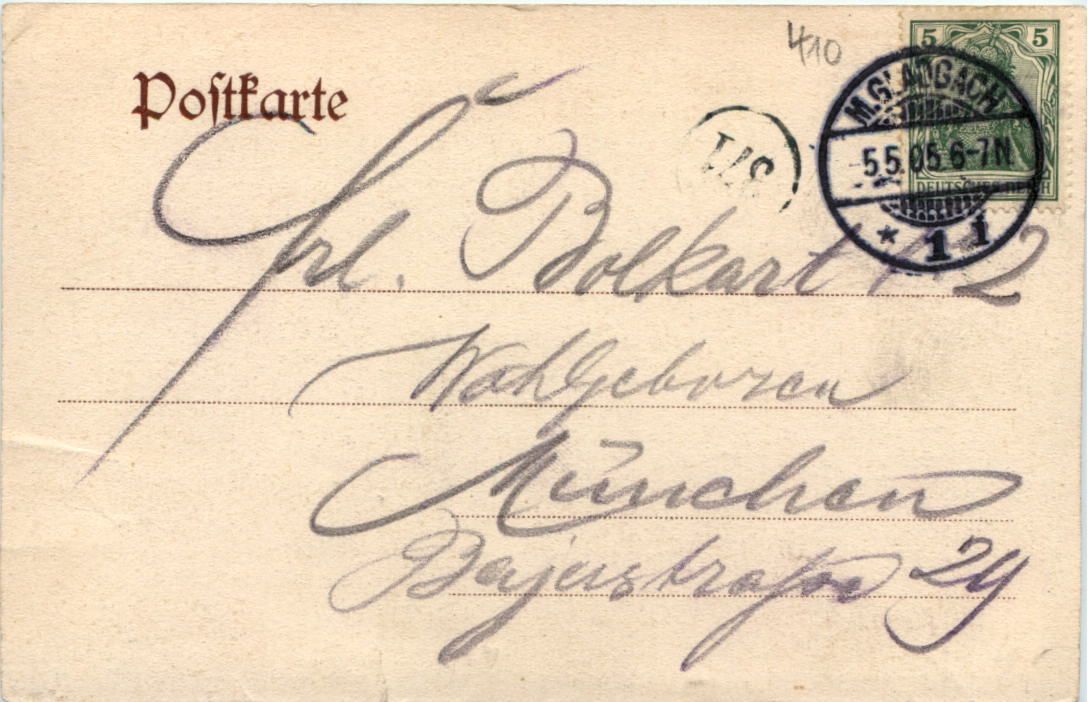 410
5 5
DEUTSCHES REICH
M. GLADBACH
5.5.05.6-7N.
* 1 i
Postkarte
Frl. Bolkart
2
Wohlgeboren
München
Bayerstraße 29